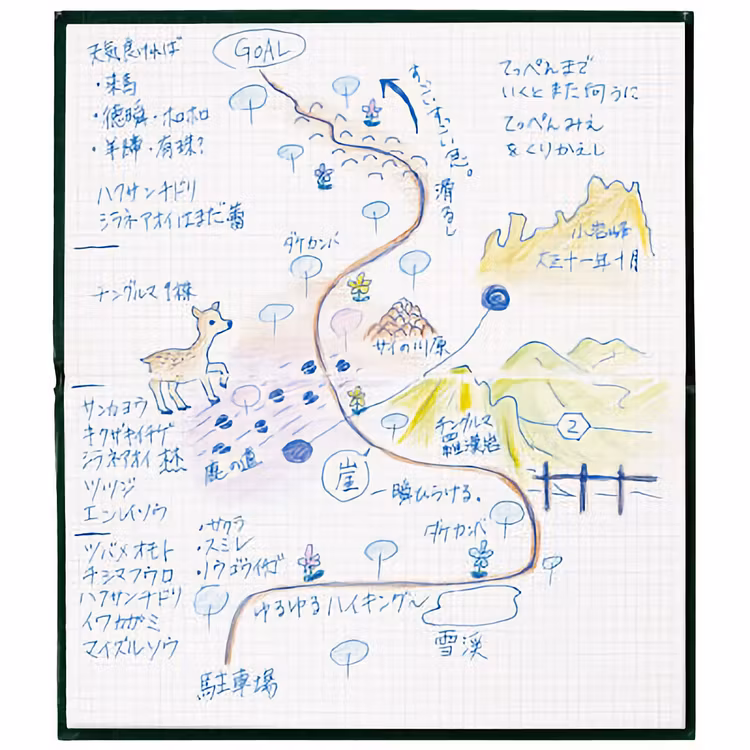 GOAL
天気良ければ
・来馬
・徳瞬・ホロホロ
・羊蹄・有珠?
ハクサンチドリ
シラネアオイはまだ蕾
すっごいすっごい急。滑るし
てっぺんまで
いくとまた向うに
てっぺんみえ
をくりかえし
小岩峰
大正十一年十月
ダケカンバ
チングルマ1株
サイの川原
サンカヨウ
キクザキイチゲ
シラネアオイ 林
ツツジ
エンレイソウ
鹿の道
チングルマ
羅漢岩
2
崖
一瞬ひらける。
ダケカンバ
・サクラ
・スミレ
・ノウゴウイチゴ
ツバメオモト
チシマフウロ
ハクサンチドリ
イワカガミ
マイズルソウ
ゆるゆるハイキング〜
雪渓
駐車場